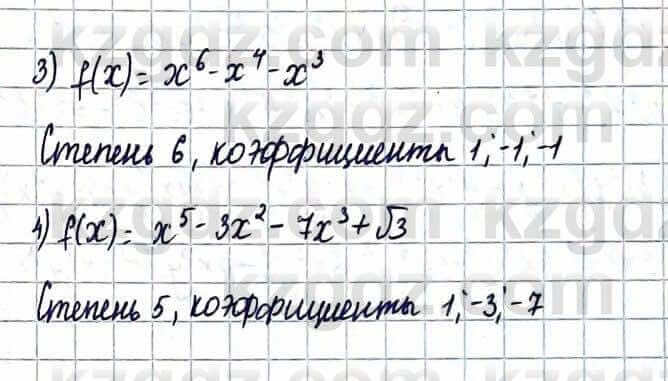 3) f(x) = x⁶ - x⁴ - x³
Степень 6, коэффициенты 1; -1; -1
4) f(x) = x⁵ - 3x² - 7x³ + √3
Степень 5, коэффициенты 1; -3; -7